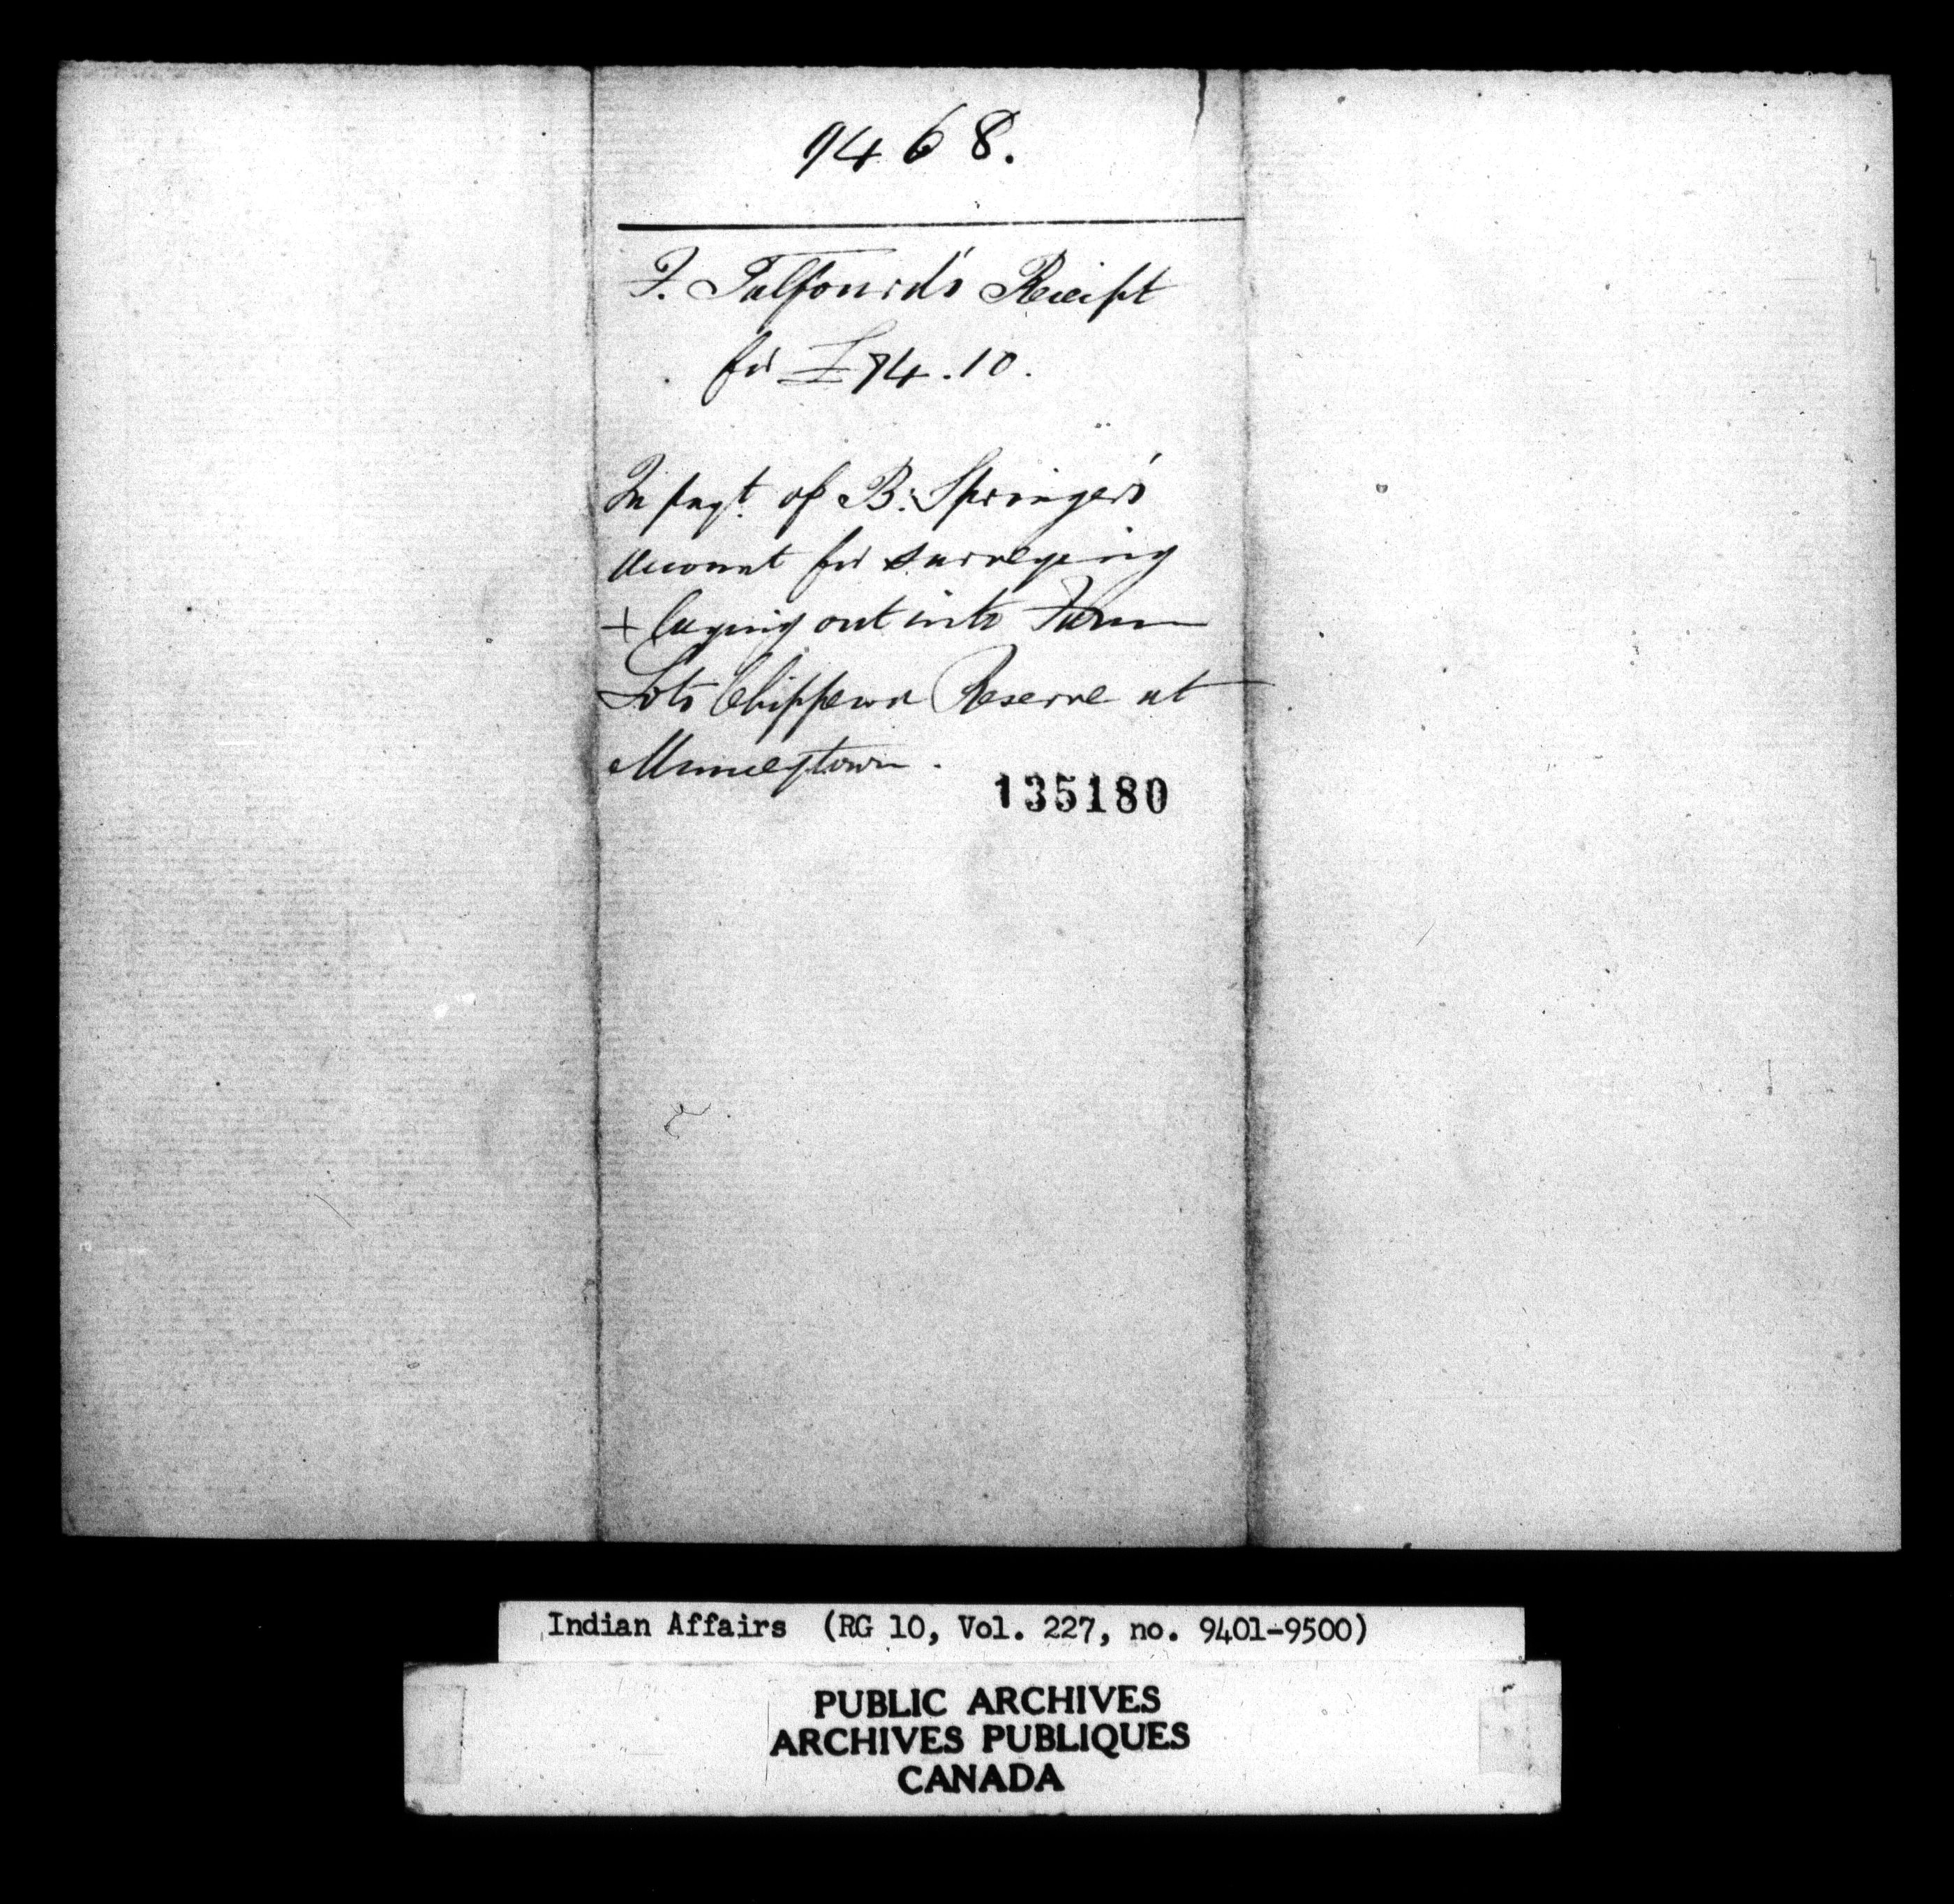 9468.
F. Talfourd's Receipt
for £74.10.
In payt. of B. Springer's
account for surveying
+ laying out into Farm
Lots Chippewa Reserve at
Munceytown.
135180
Indian Affairs (RG 10, Vol. 227, no. 9401-9500)
PUBLIC ARCHIVES
ARCHIVES PUBLIQUES
CANADA